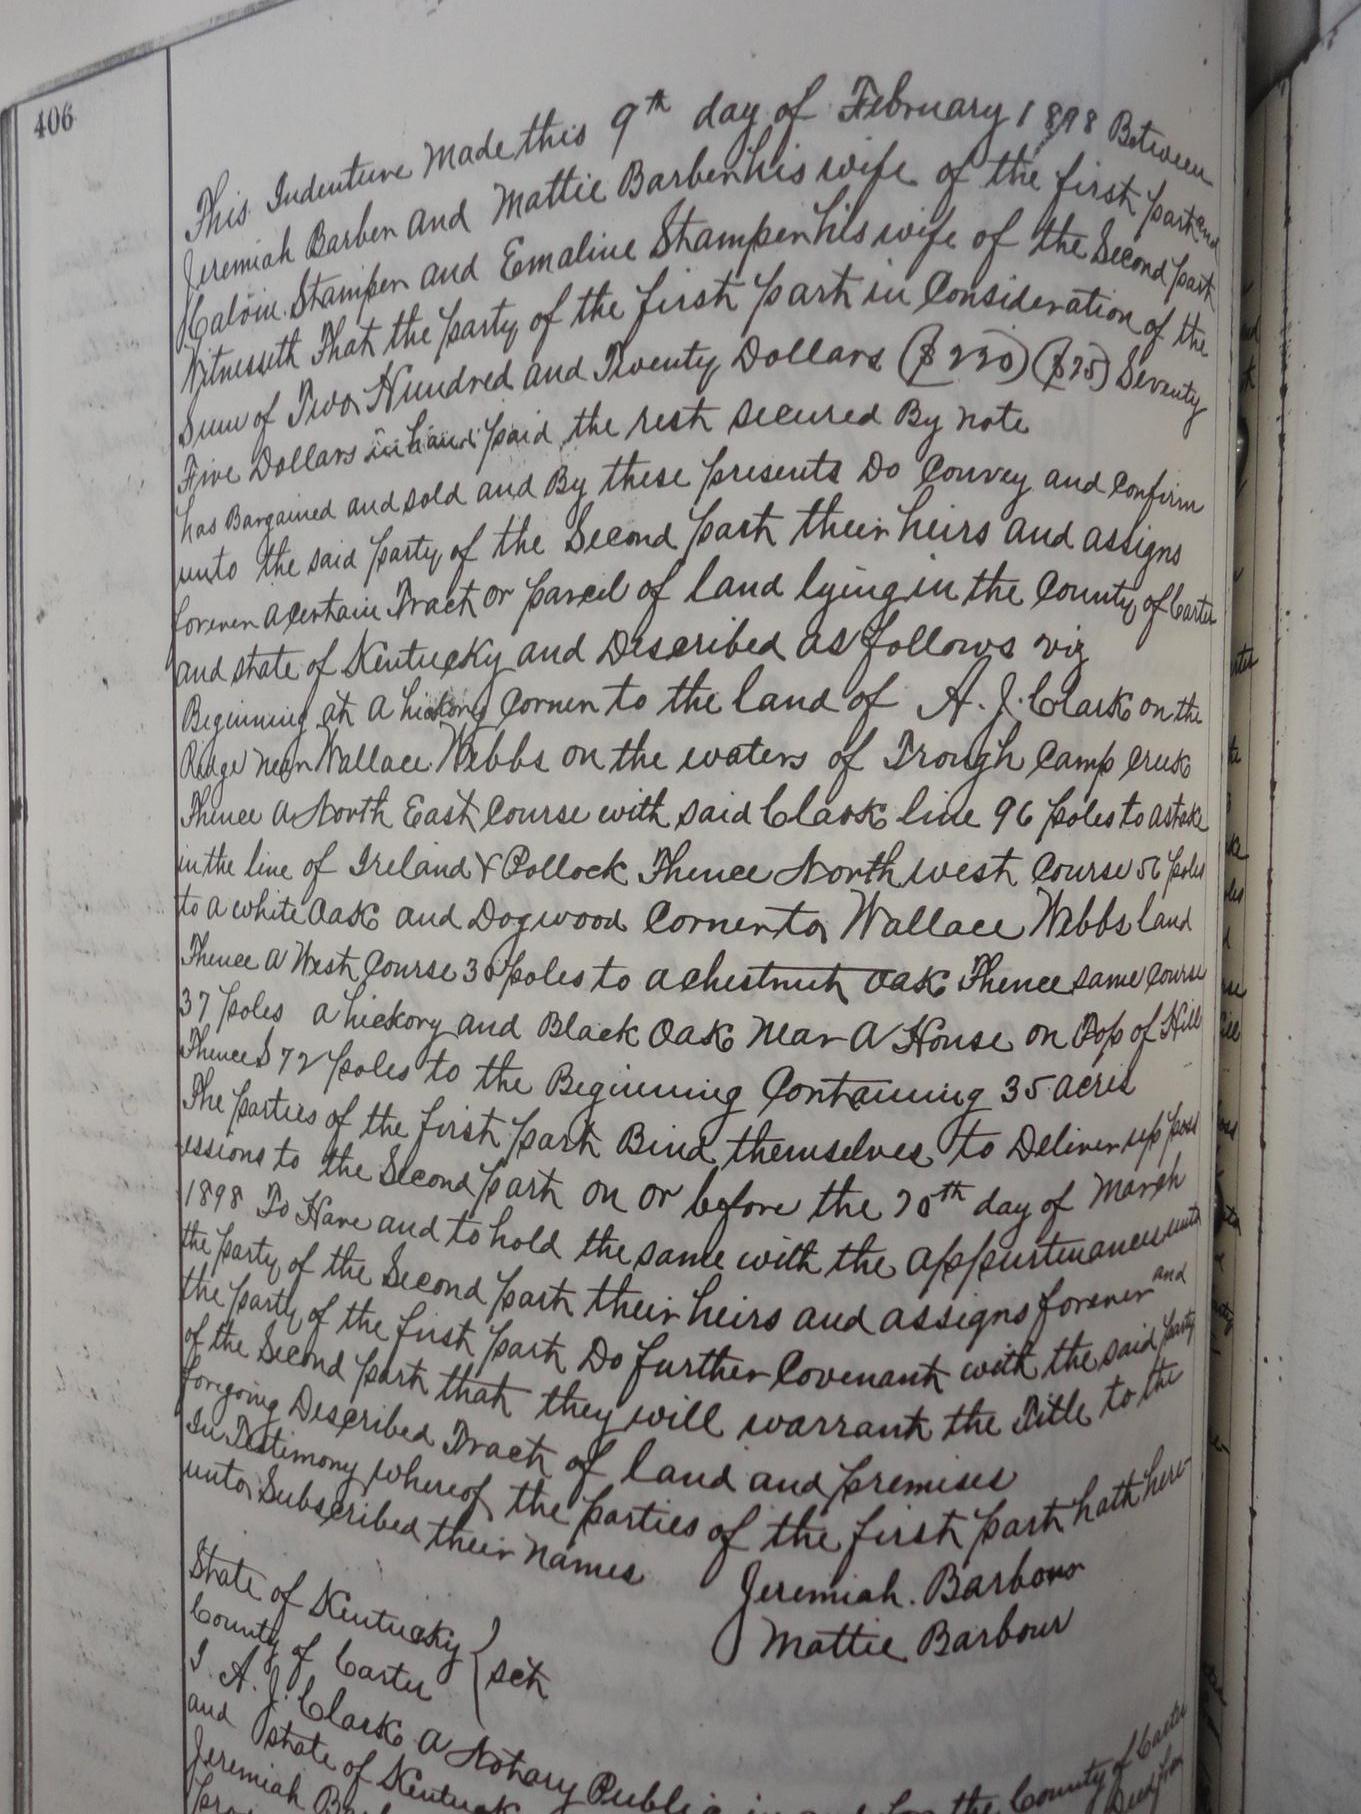 406
This Indenture Made this 9th day of February 1898 Between
Jeremiah Barber and Mattie Barber his wife of the first part and
Calvin Stamper and Emaline Stamper his wife of the Second part
Witnesseth That the party of the first part in Consideration of the
Sum of Two Hundred and Twenty Dollars ($220) ($75) Seventy
Five Dollars in hand paid the rest secured By note
has Bargained and sold and By these presents Do Convey and Confirm
unto the said party of the Second part their heirs and assigns
forever a Certain Tract or parcel of land lying in the County of Carter
and state of Kentucky and Described as follows viz
Beginning at a hickory Corner to the land of A. J. Clark on the
Ridge near Wallace Webbs on the waters of Trough Camp Creek
Thence a North East Course with said Clark line 96 poles to a stake
in the line of Ireland & Pollock Thence North west Course 56 poles
to a white Oak and Dogwood Corner to Wallace Webbs land
Thence a West Course 30 poles to a chestnut Oak Thence same Course
37 poles a hickory and Black Oak Near a House on Top of Hill
Thence S 72 poles to the Beginning Containing 35 acres
The parties of the first part Bind themselves to Deliver up poss
essions to the Second part on or before the 20th day of March
1898 To Have and to hold the same with the appurtenances unto
the party of the Second part their heirs and assigns forever and
the party of the first part Do further Covenant with the said party
of the Second part that they will warrant the Title to the
forgoing Described Tract of land and premises
In Testimony whereof the parties of the first part hath here-
unto Subscribed their Names
Jeremiah. Barbour
Mattie Barbour
State of Kentucky
County of Carter } sct
I. A. J. Clark a Notary Public in and for the County of Carter
and state of Kentucky Deed from
Jeremiah